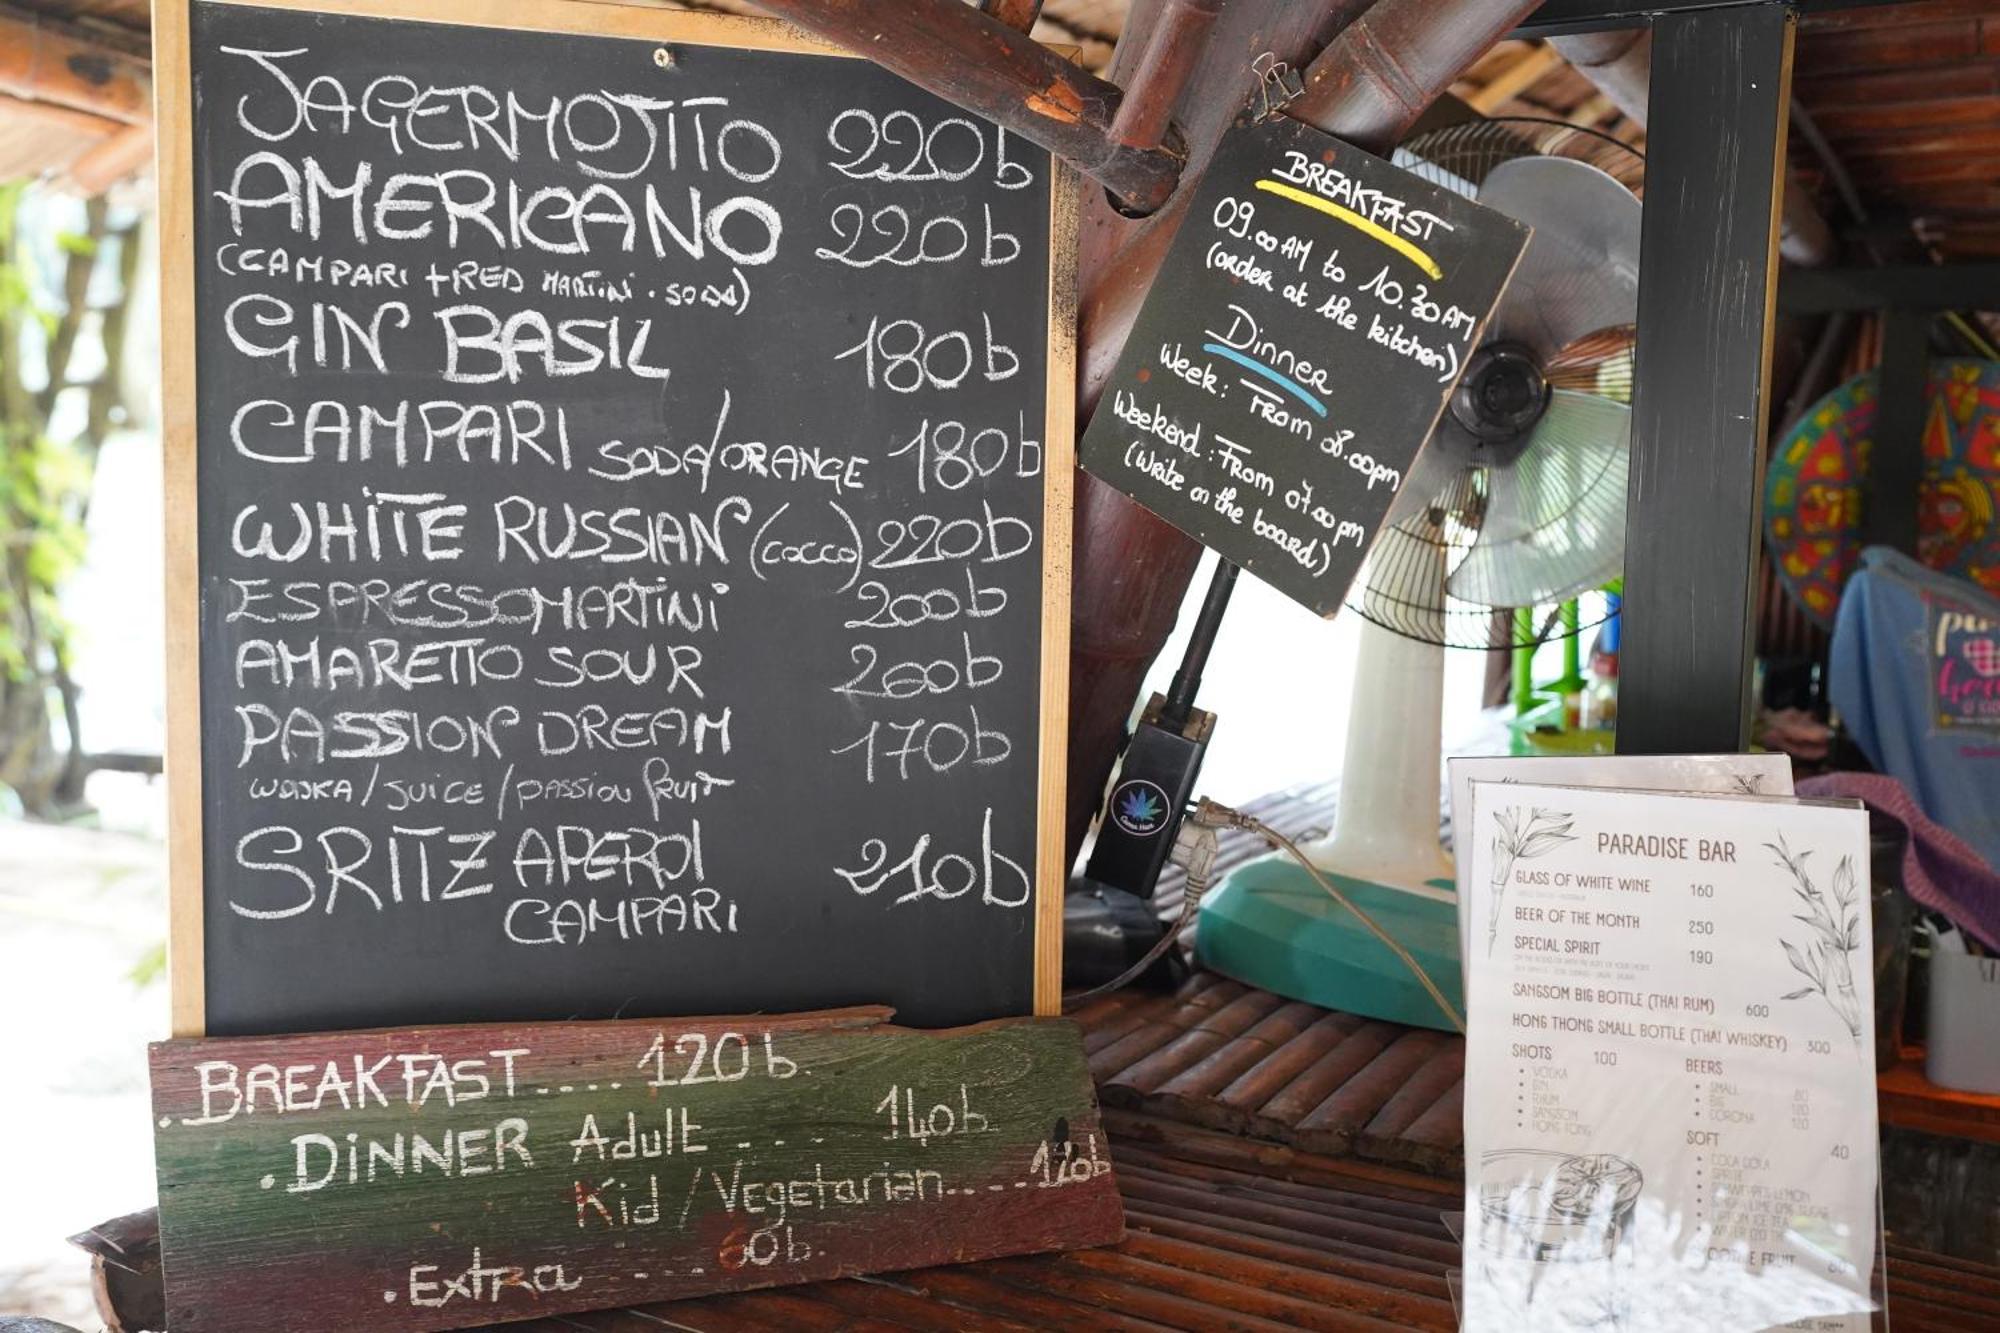 JAGERMOJITO 220b
AMERICANO 220b
(CAMPARI + RED MARTINI . SODA)
GIN BASIL 180b
CAMPARI SODA/ORANGE 180b
WHITE RUSSIAN (cocco) 220b
ESPRESSOMARTINI 200b
AMARETTO SOUR 200b
PASSION DREAM 170b
WODKA / JUICE / passion fruit
SRITZ APEROL 210b
CAMPARI
. BREAKFAST .... 120b.
. DINNER Adult ... 140b.
Kid / Vegetarian .... 120b
. Extra ... 60b.
BREAKFAST
09.00 AM to 10.30 AM
(order at the kitchen)
Dinner
Week: From 08.00pm
Weekend: From 07.00pm
(Write on the board)
PARADISE BAR
GLASS OF WHITE WINE 160
BEER OF THE MONTH 250
SPECIAL SPIRIT 190
SANGSOM BIG BOTTLE (THAI RUM) 600
HONG THONG SMALL BOTTLE (THAI WHISKEY) 300
SHOTS 100
• VODKA
• GIN
• RHUM
• SANGSOM
• HONG TONG
BEERS
• SMALL 80
• BIG
• CORONA
SOFT 40
• COCA COLA
• SPRITE